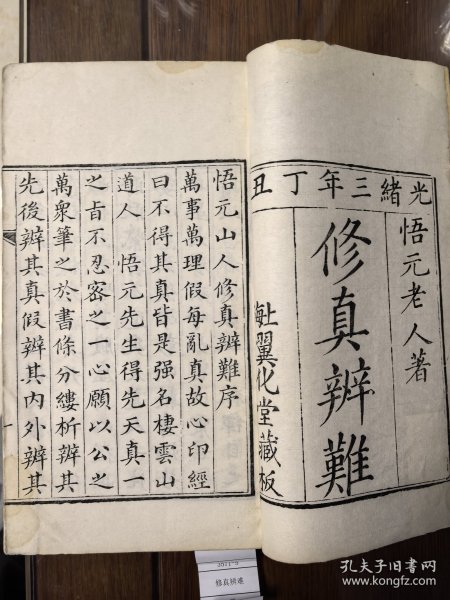 光緒三年丁丑
悟元老人著
修真辨難
上海翼化堂藏板
悟元山人修真辨難序
萬事萬理假每亂真故心印經
曰不得其真皆是强名棲雲山
道人　悟元先生得先天真一
之旨不忍密之一心願以公之
萬衆筆之於書條分縷析辨其
先後辨其真假辨其内外辨其
3011-9
修真辨难
孔夫子旧书网
www.kongfz.com